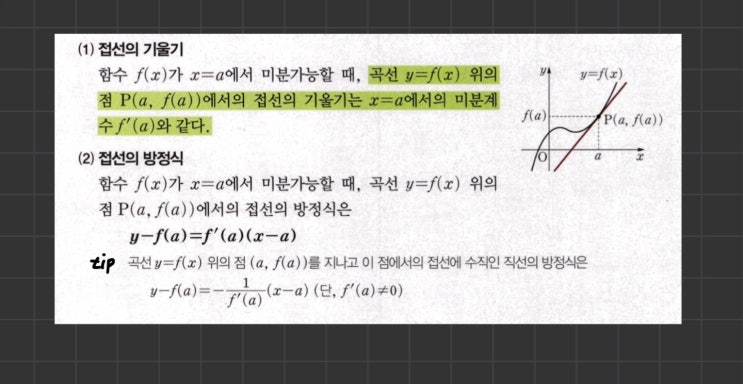 (1) 접선의 기울기
함수 f(x)가 x=a에서 미분가능할 때, 곡선 y=f(x) 위의
점 P(a, f(a))에서의 접선의 기울기는 x=a에서의 미분계
수 f′(a)와 같다.
(2) 접선의 방정식
함수 f(x)가 x=a에서 미분가능할 때, 곡선 y=f(x) 위의
점 P(a, f(a))에서의 접선의 방정식은
y-f(a)=f′(a)(x-a)
tip 곡선 y=f(x) 위의 점 (a, f(a))를 지나고 이 점에서의 접선에 수직인 직선의 방정식은
y-f(a)=-1/f′(a)(x-a) (단, f′(a)≠0)
y y=f(x)
f(a) P(a, f(a))
O a x